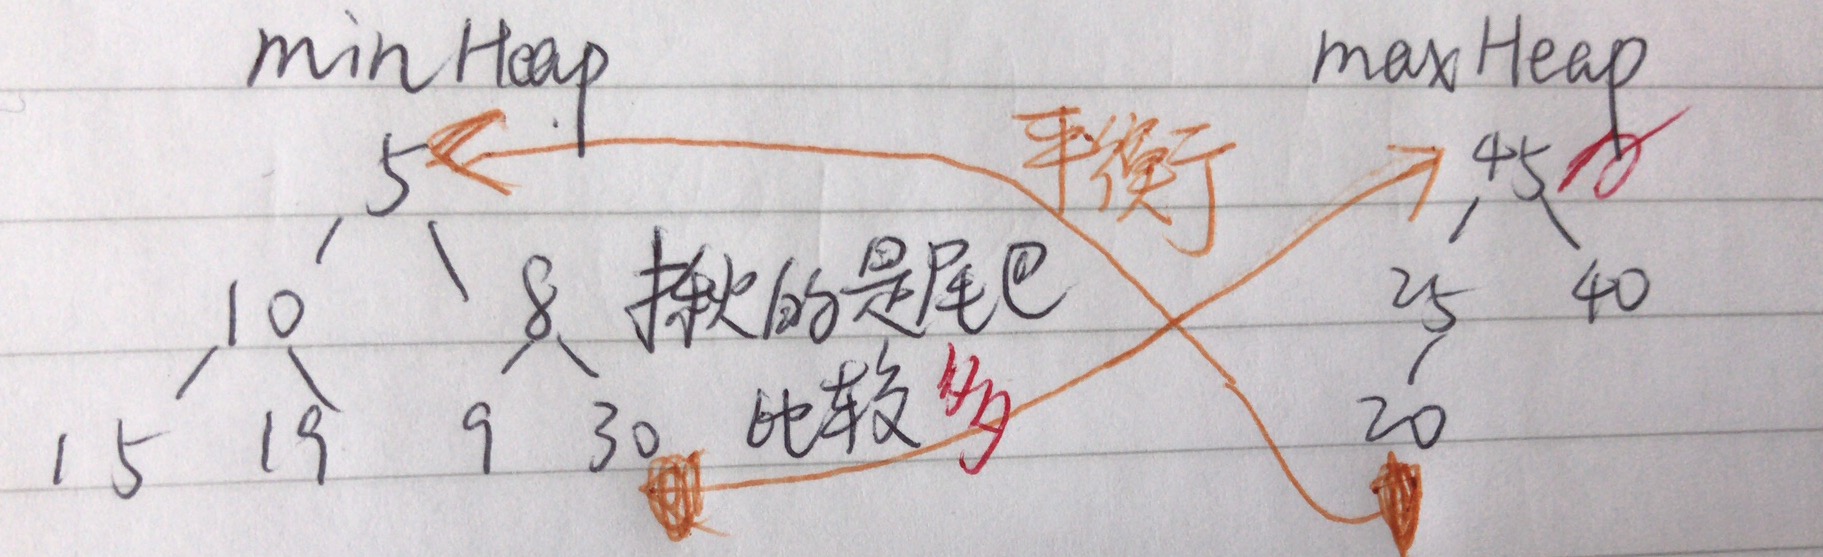 minHeap maxHeap
5 平衡 45
10 8 揪的是尾巴 25 40
15 19 9 30 比较多 20